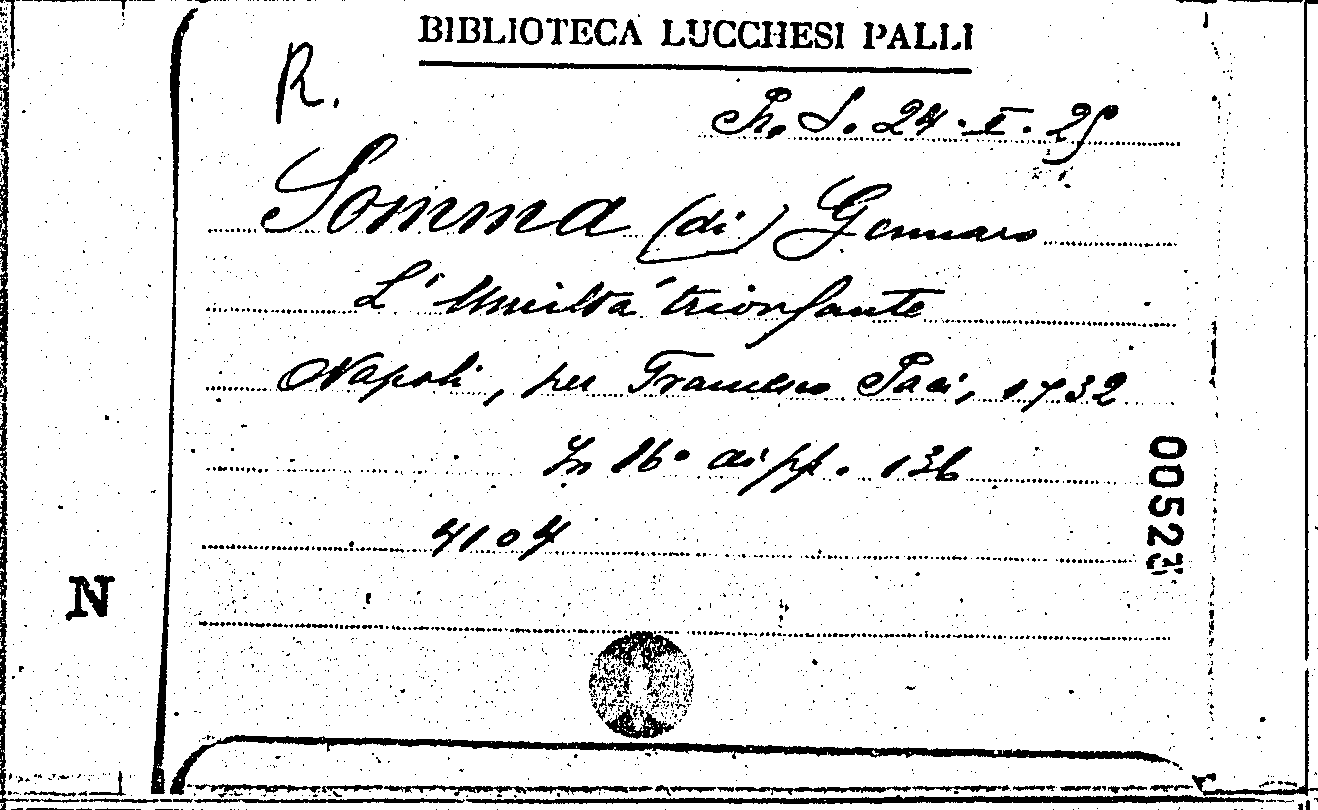 BIBLIOTECA LUCCHESI PALLI
R.
R. S. 24. I. 25
Somma (di) Gennaro
L'Umiltà trionfante
Napoli, per Francesco Paci, 1732
In 16° di pp. 136
4104
00523
N